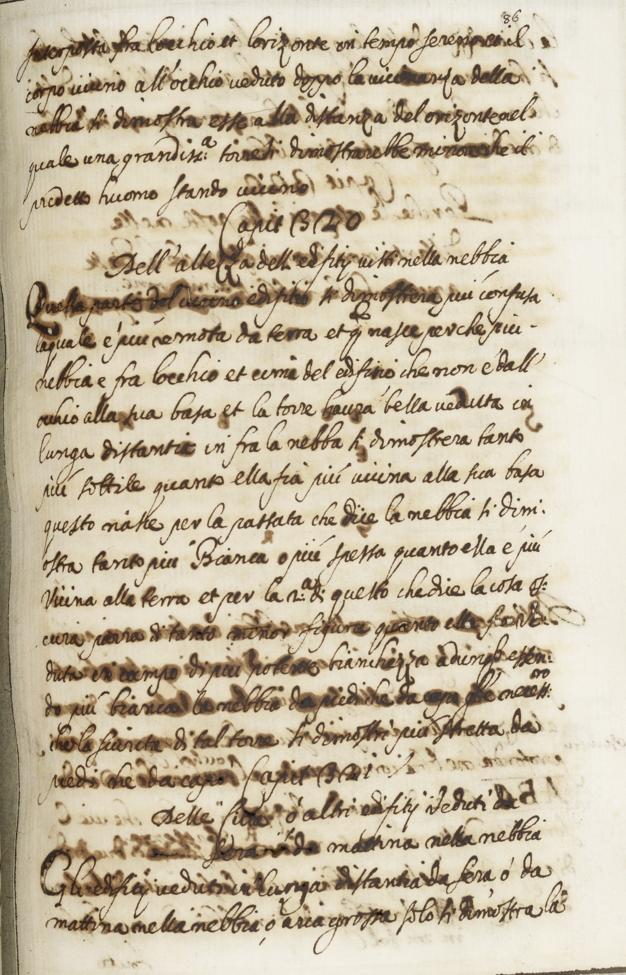 86
interposta fra l'occhio et l'orizonte in tempo sereno et il
corpo vicino all'occhio veduto doppo la vicinanza della
nebbia si dimostra esse alla distanza del orizonte nel
quale una grandiss.ª torre si dimostrarebbe minore che il
predetto huomo stando vicino
Capit 320
Dell'altezza dell edifitij visti nella nebbia
Quella parte del vicino edifitio si dimostrera più confusa
laquale è più remota da terra et q̃ nasce perche più
nebbia e fra l'occhio et cima del edifitio che non è dall'
occhio alla sua basa et la torre veduta in
lunga distantia in fra la nebba si dimostera tanto
più sottile quanto ella fia più vicina alla sua basa
questo nasce per la passata che dice la nebbia si dim:
ostra tanto piu Bianca o più spessa quanto ella è più
Vicina alla terra et per la 2.ª di questo che dice la cosa os:
cura parra di tanto minor figura quanto ella fia Ve:
duta in campo di più potente bianchezza adunq; essen:
do più bianca la nebbia da piedi che da capo necess:
che la scurita di tal torre si dimostri più stretta da
piedi che da capo. Capit 321
Delle Citta ó altri edifitij Veduti da
Sera o da mattina nella nebbia
Gli edifitij veduti in lunga distantia da sera ó da
mattina nella nebbia, o aria grossa solo si dimostra la